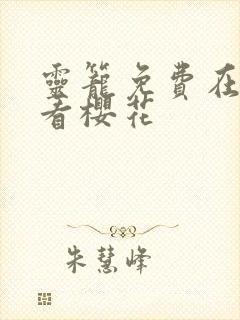 靈籠免費在
看櫻花
朱慧峰